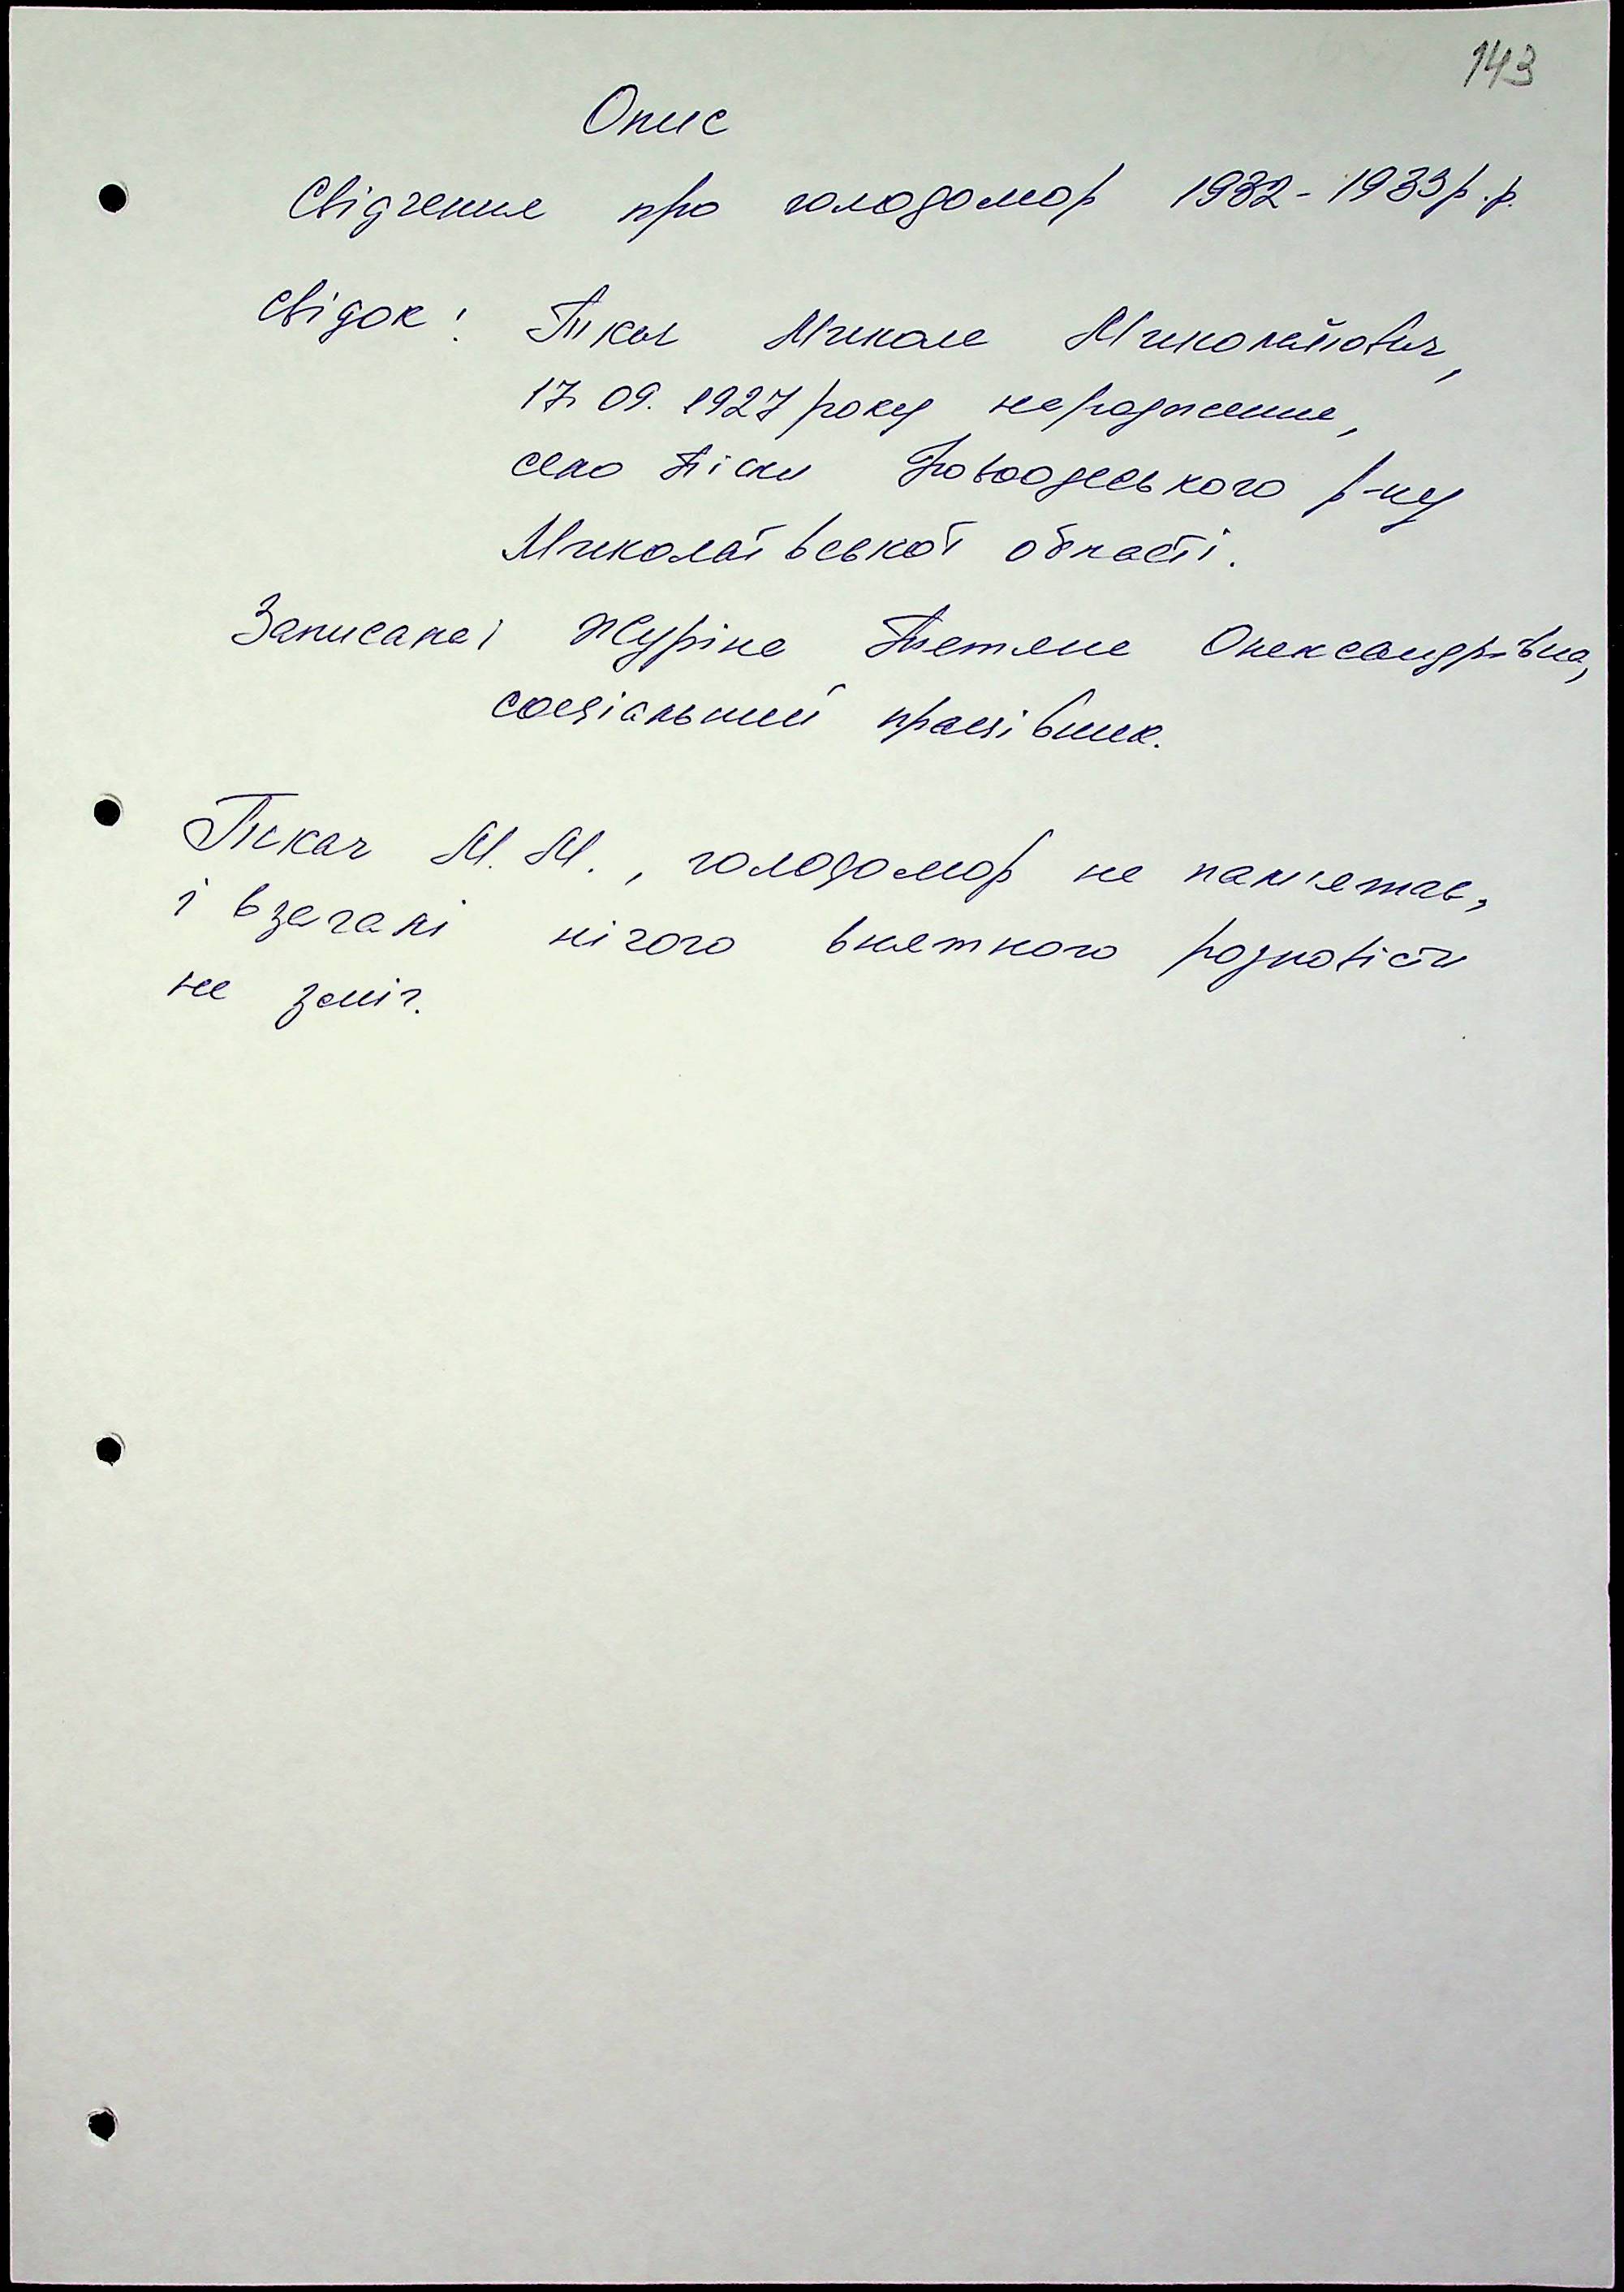 143
Опис
Свідчення про голодомор 1932-1933р.р.
Свідок: Ткач Микола Миколайович,
17.09.1927 року народження,
село Піски Новоодеського р-ну
Миколаївської області.
Записала: Журіна Тетяна Олександрівна,
соціальний працівник.
Ткач М.М., голодомор не пам'ятає,
і взагалі нічого внятного розповісти
не зміг.